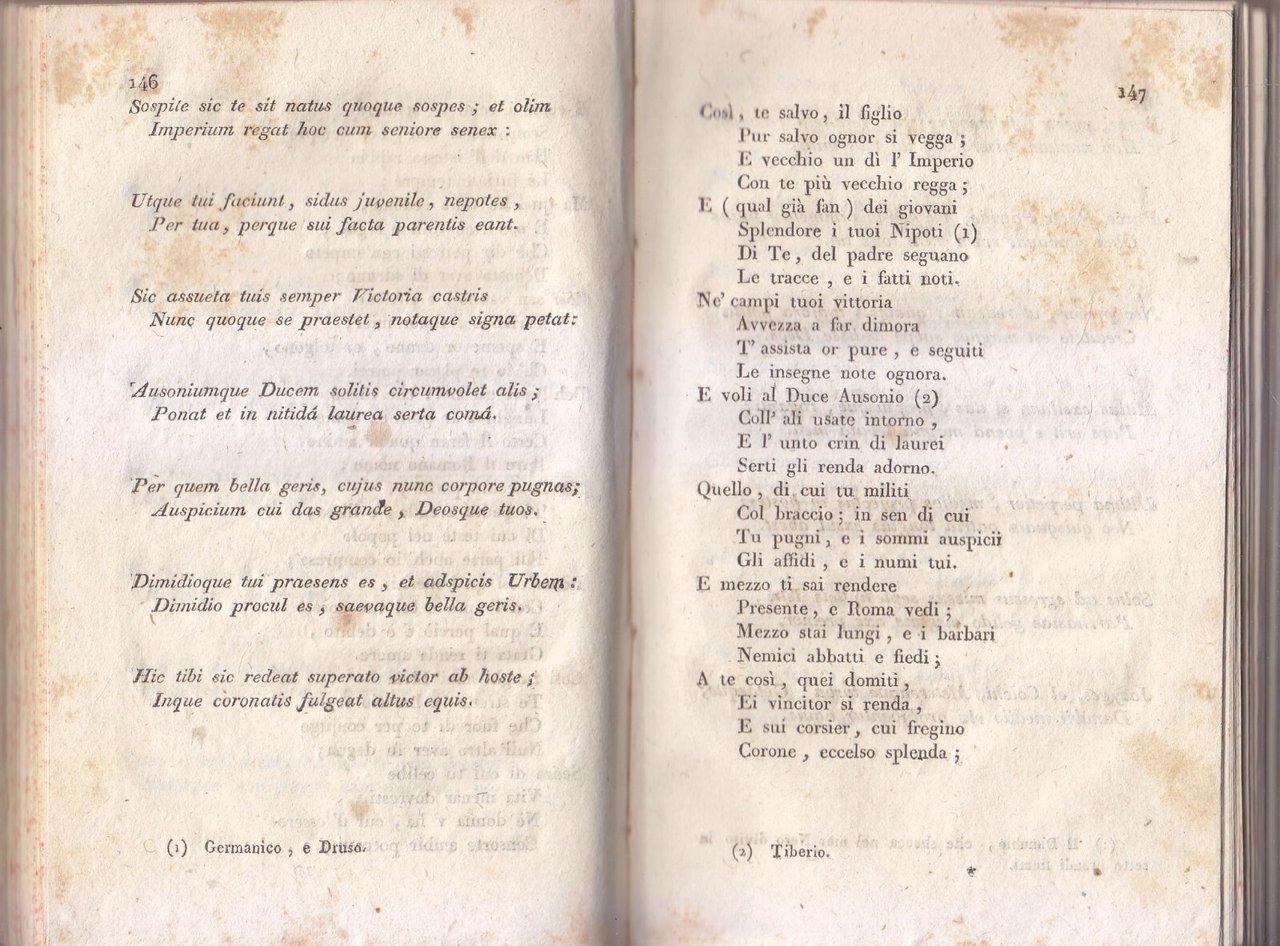 146
Sospite sic te sit natus quoque sospes ; et olim
Imperium regat hoc cum seniore senex :
Utque tui faciunt, sidus juvenile, nepotes ,
Per tua, perque sui facta parentis eant.
Sic assueta tuis semper Victoria castris
Nunc quoque se praestet, notaque signa petat:
Ausoniumque Ducem solitis circumvolet alis ;
Ponat et in nitidá laurea serta comá.
Per quem bella geris, cujus nunc corpore pugnas;
Auspicium cui das grande, Deosque tuos.
Dimidioque tui praesens es, et adspicis Urbem :
Dimidio procul es, saevaque bella geris.
Hic tibi sic redeat superato victor ab hoste ;
Inque coronatis fulgeat altus equis.
(1) Germanico, e Druso.
147
Così, te salvo, il figlio
Pur salvo ognor si vegga ;
E vecchio un dì l' Imperio
Con te più vecchio regga ;
E ( qual già fan ) dei giovani
Splendore i tuoi Nipoti (1)
Di Te, del padre seguano
Le tracce, e i fatti noti.
Ne' campi tuoi vittoria
Avvezza a far dimora
T' assista or pure, e seguiti
Le insegne note ognora.
E voli al Duce Ausonio (2)
Coll' ali usate intorno,
E l' unto crin di laurei
Serti gli renda adorno.
Quello, di cui tu militi
Col braccio ; in sen di cui
Tu pugni, e i sommi auspicii
Gli affidi, e i numi tui.
E mezzo ti sai rendere
Presente, e Roma vedi ;
Mezzo stai lungi, e i barbari
Nemici abbatti e fiedi ;
A te così, quei domiti,
Ei vincitor si renda,
E sui corsier, cui fregino
Corone, eccelso splenda ;
(2) Tiberio.
*